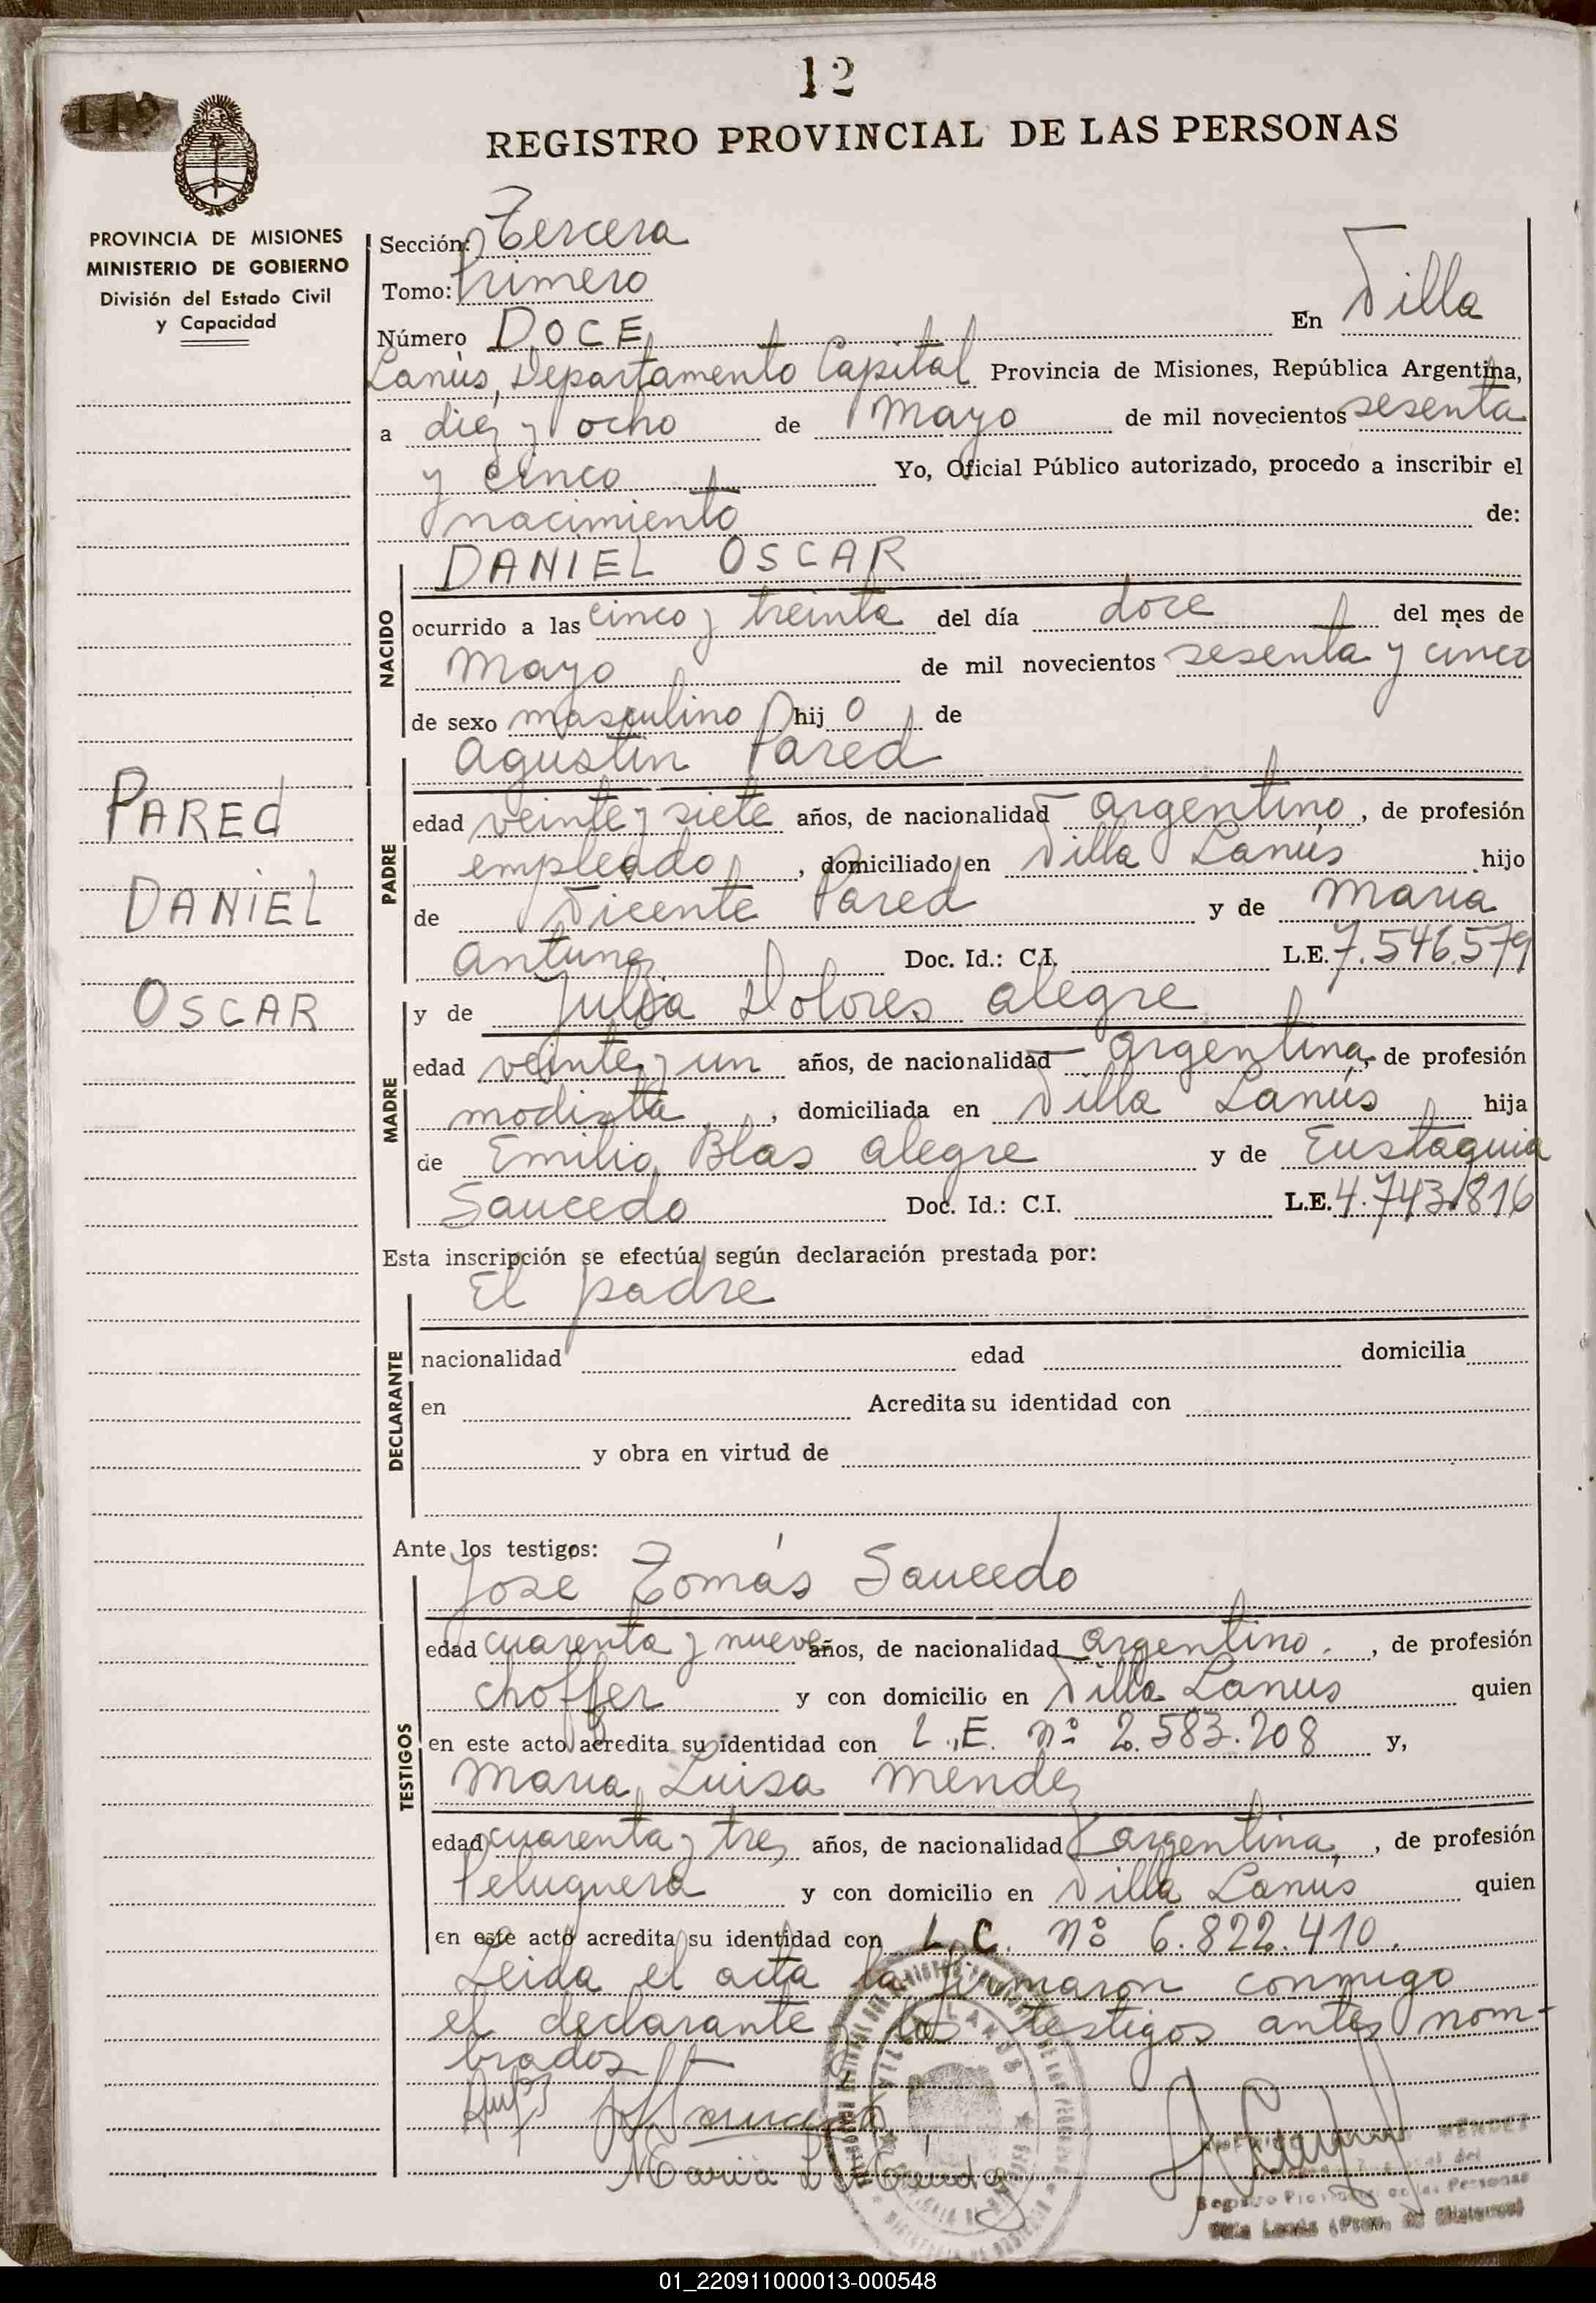 12
112
REGISTRO PROVINCIAL DE LAS PERSONAS
PROVINCIA DE MISIONES
MINISTERIO DE GOBIERNO
División del Estado Civil
y Capacidad
Sección: Tercera
Tomo: Primero
Número DOCE En Villa
Lanús, Departamento Capital Provincia de Misiones, República Argentina,
a diez y ocho de Mayo de mil novecientos sesenta
y cinco Yo, Oficial Público autorizado, procedo a inscribir el
nacimiento de:
DANIEL OSCAR
NACIDO
ocurrido a las cinco y treinta del día doce del mes de
Mayo de mil novecientos sesenta y cinco
de sexo masculino hij o de
Agustin Pared
PADRE
edad veinte y siete años, de nacionalidad argentino, de profesión
empleado, domiciliado en Villa Lanús hijo
de Vicente Pared y de Maria
Antunez Doc. Id.: C.I. L.E. 7.546.579
PARED
DANIEL
OSCAR
y de Julia Dolores Alegre
MADRE
edad veinte y un años, de nacionalidad argentina, de profesión
modista, domiciliada en Villa Lanús hija
de Emilio Blas Alegre y de Eustaquia
Saucedo Doc. Id.: C.I. L.E. 4.743.816
Esta inscripción se efectúa según declaración prestada por:
El padre
DECLARANTE
nacionalidad edad domicilia
en Acredita su identidad con
y obra en virtud de
Ante los testigos:
José Tomás Saucedo
TESTIGOS
edad cuarenta y nueve años, de nacionalidad argentino. , de profesión
choffer y con domicilio en Villa Lanus quien
en este acto acredita su identidad con L.E. nº 2.583.208 y,
Maria Luisa Mendez
edad cuarenta y tres años, de nacionalidad argentina, , de profesión
Peluquera y con domicilio en Villa Lanus quien
en este acto acredita su identidad con L.C. nº 6.822.410.
Leida el acta la firmaron conmigo
el declarante y los testigos antes nom-
brados
Maria L Méndez
VILLA LANUS
MENDEZ
Registro Provincial de las Personas
Villa Lanús (Prov. de Misiones)
01_220911000013-000548